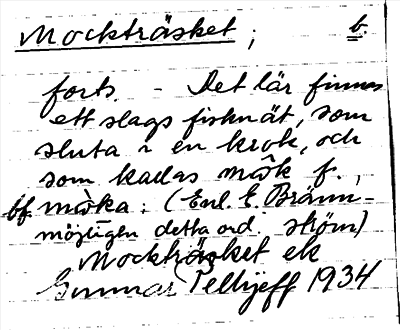 Mockträsket; b.
forts. - Det lär finnas
ett slags fisknät, som
sluta i en krok, och
som kallas mårk f.,
bf. mårka. (Enl. E. Bränn-
möjligen detta ord. ström)
Mockträsket ek
Gunnar Pellijeff 1934